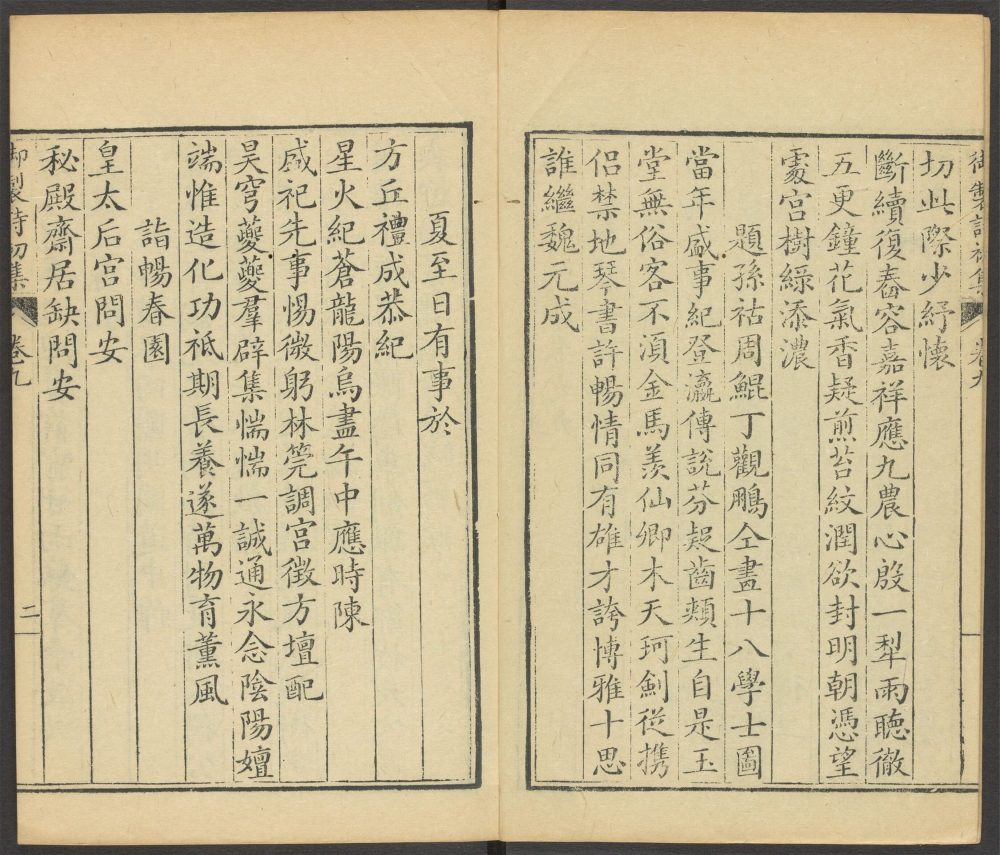 御製詩初集 卷九
切此際少紓懷
斷續復舂容嘉祥應九農心殷一犁雨聽徹
五更鐘花氣香疑煎苔紋潤欲封明朝憑望
處宮樹綠添濃
題孫祜周鯤丁觀鵬仝畫十八學士圖
當年盛事紀登瀛傳說芬疑齒頰生自是玉
堂無俗客不須金馬羨仙卿木天珂劍從携
侶禁地琴書許暢情同有雄才誇博雅十思
誰繼魏元成
夏至日有事於
方丘禮成恭紀
星火紀蒼龍陽烏晝午中應時陳
盛祀先事惕微躬林箢調宮徵方壇配
昊穹夔夔羣辟集惴惴一誠通永念陰陽嬗
端惟造化功祗期長養遂萬物育薰風
詣暢春園
皇太后宮問安
秘殿齋居缺問安
御製詩初集 卷九 二